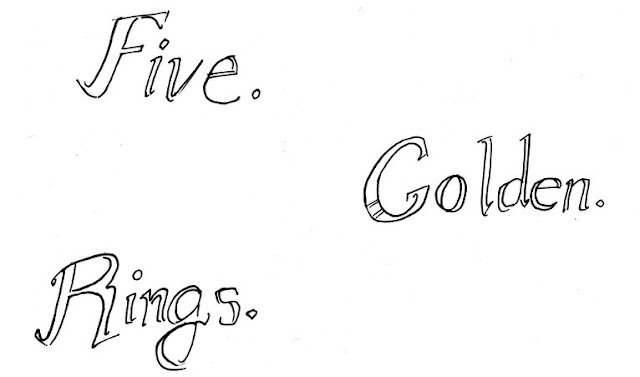 Five.
Golden.
Rings.